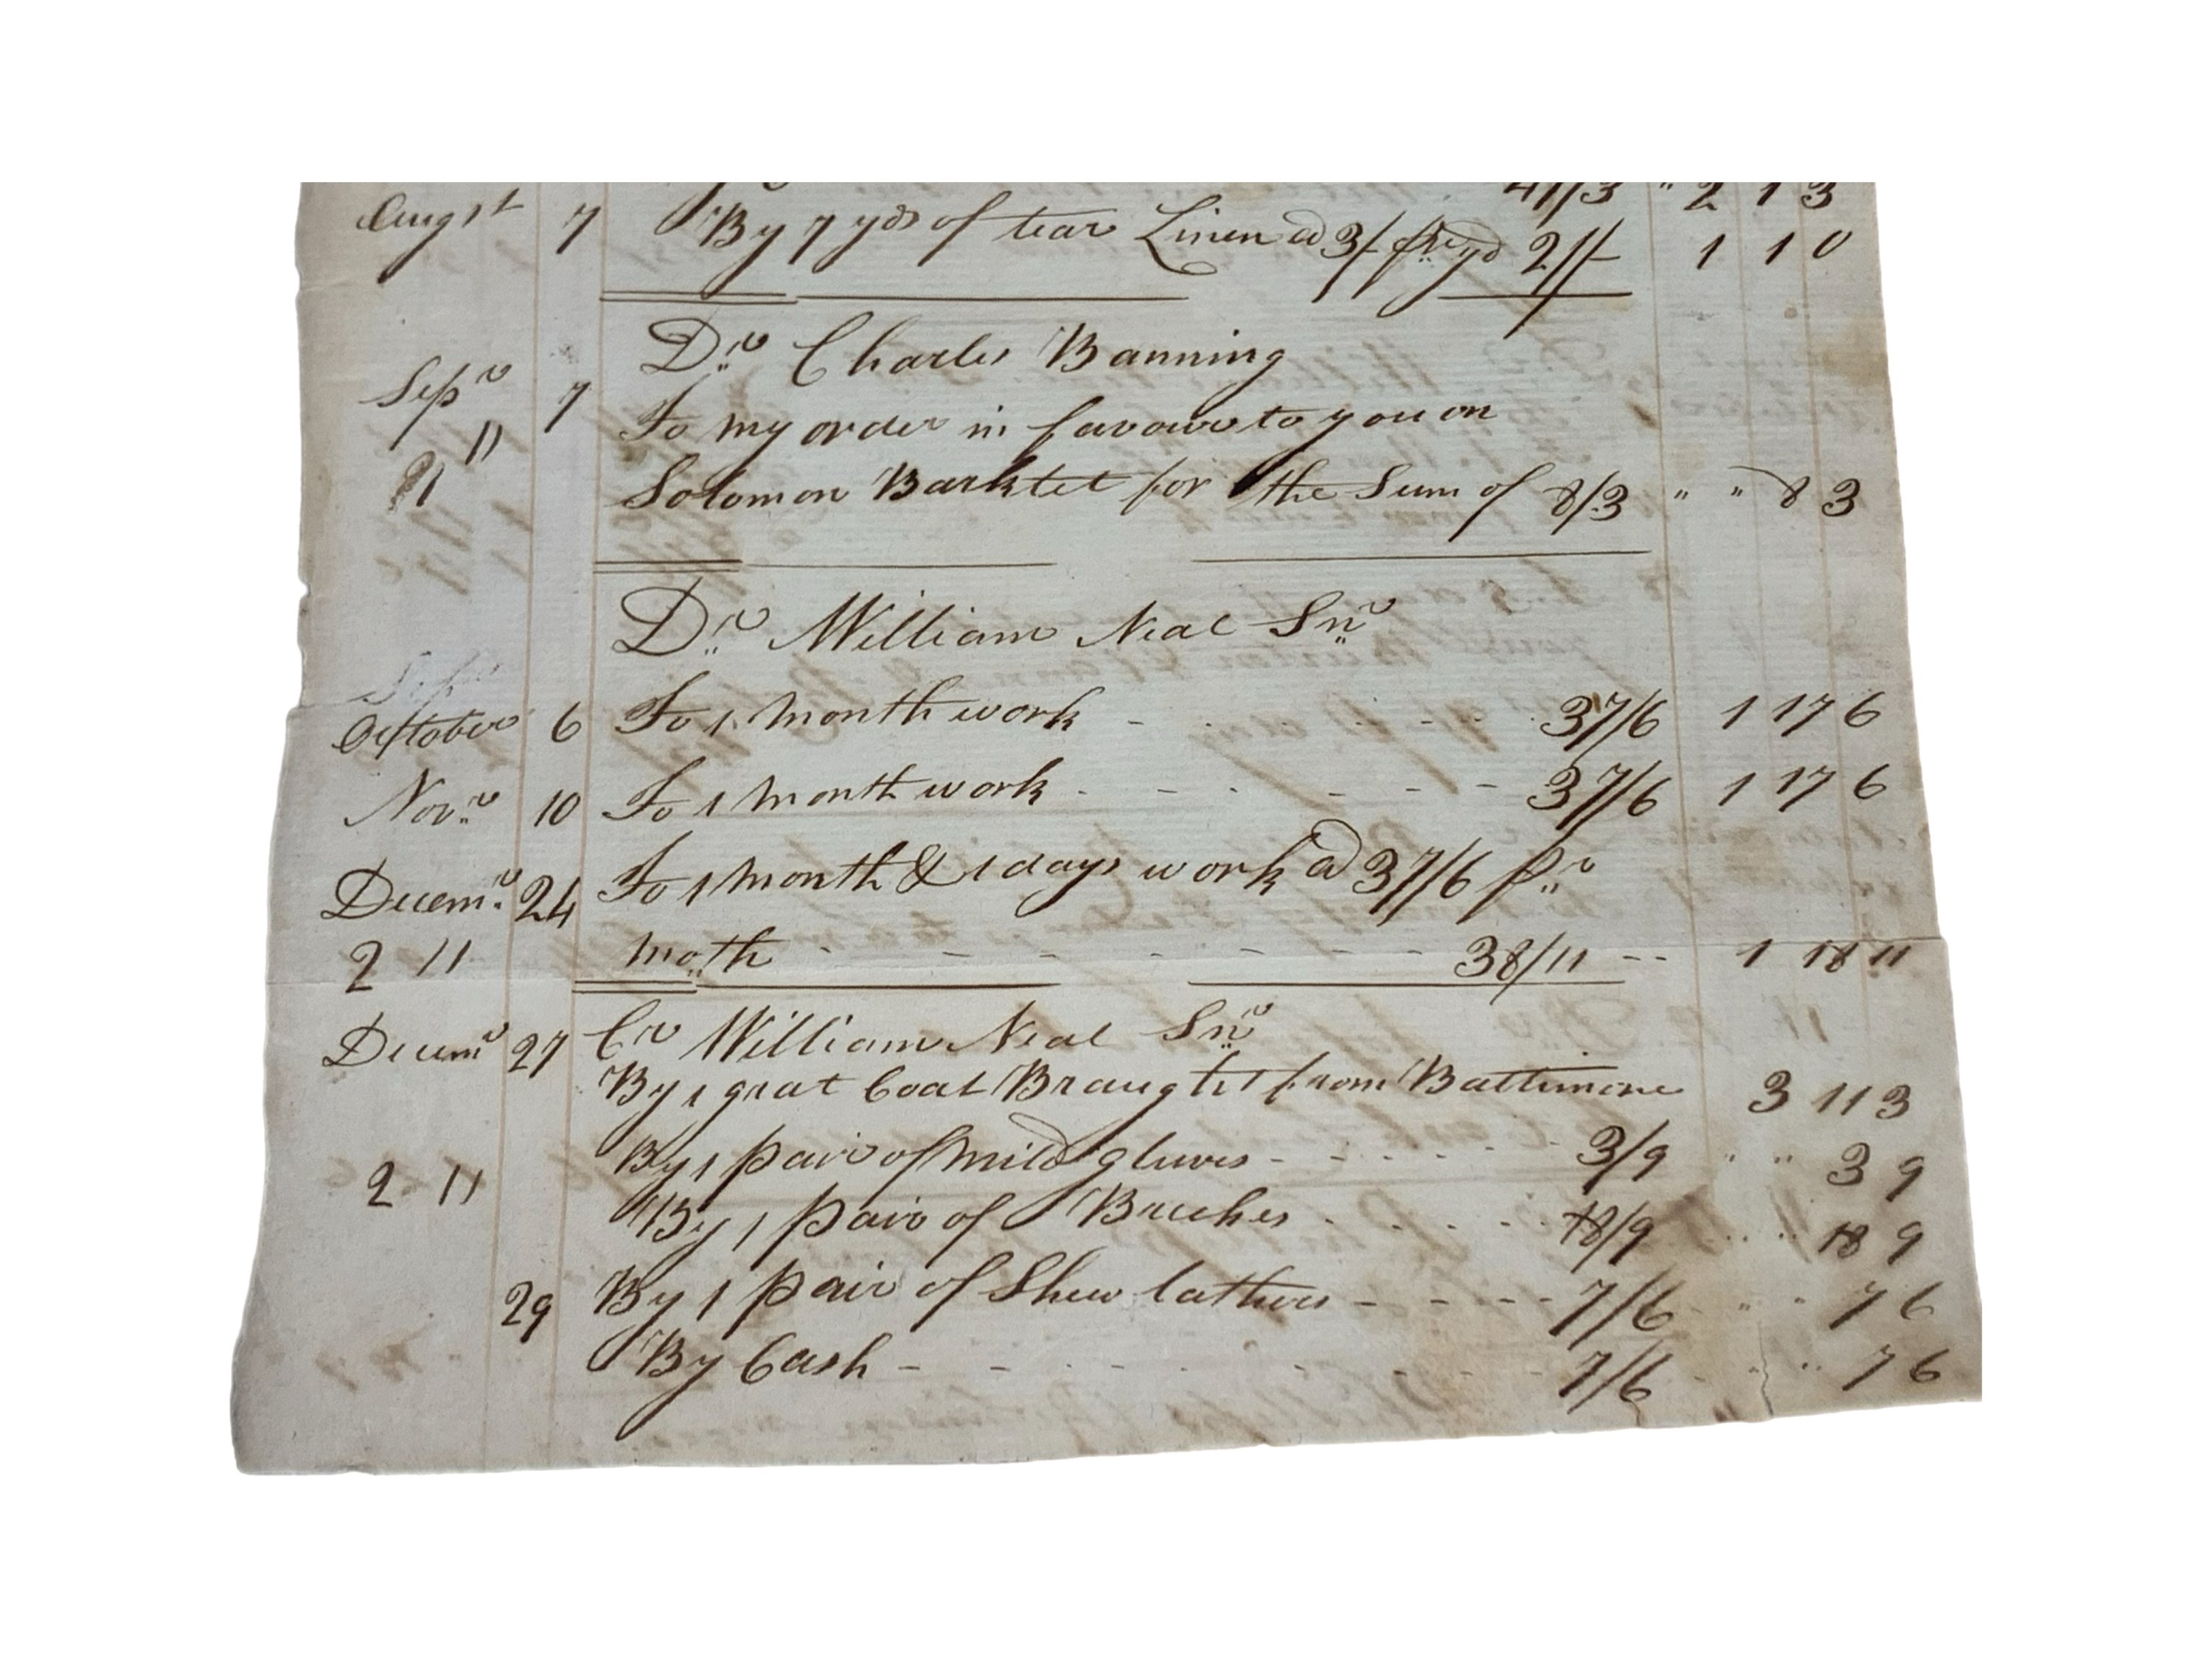 41/3 " 2 1 3
Augst 7 By 7 yds of tear Linen @ 3/ pr yd 21/ 1 1 0
Dr Charles Banning
Sepr 7 To my order in favour to you on
11
21 Solomon Barktet for the Sum of 8/3 " " 8 3
Dr William Neal Snr
Sepr
October 6 To 1 month work - - - - 37/6 1 17 6
Novr 10 To 1 month work - - - - - - 37/6 1 17 6
Decemr 24 To 1 month & 1 days work @ 37/6 pr
2 11 moth - - - - - - - 38/11 -- 1 18 11
Decemr 27 Cr William Neal Snr
By 1 great Coat Braught from Baltimore 3 11 3
2 11 By 1 pair of mild gluves - - - - - 3/9 " " 3 9
By 1 pair of Bruches - - - - 18/9 " " 18 9
29 By 1 pair of Shew lathers - - - - 7/6 " " 7 6
By Cash - - - - - - - - 7/6 " " 7 6